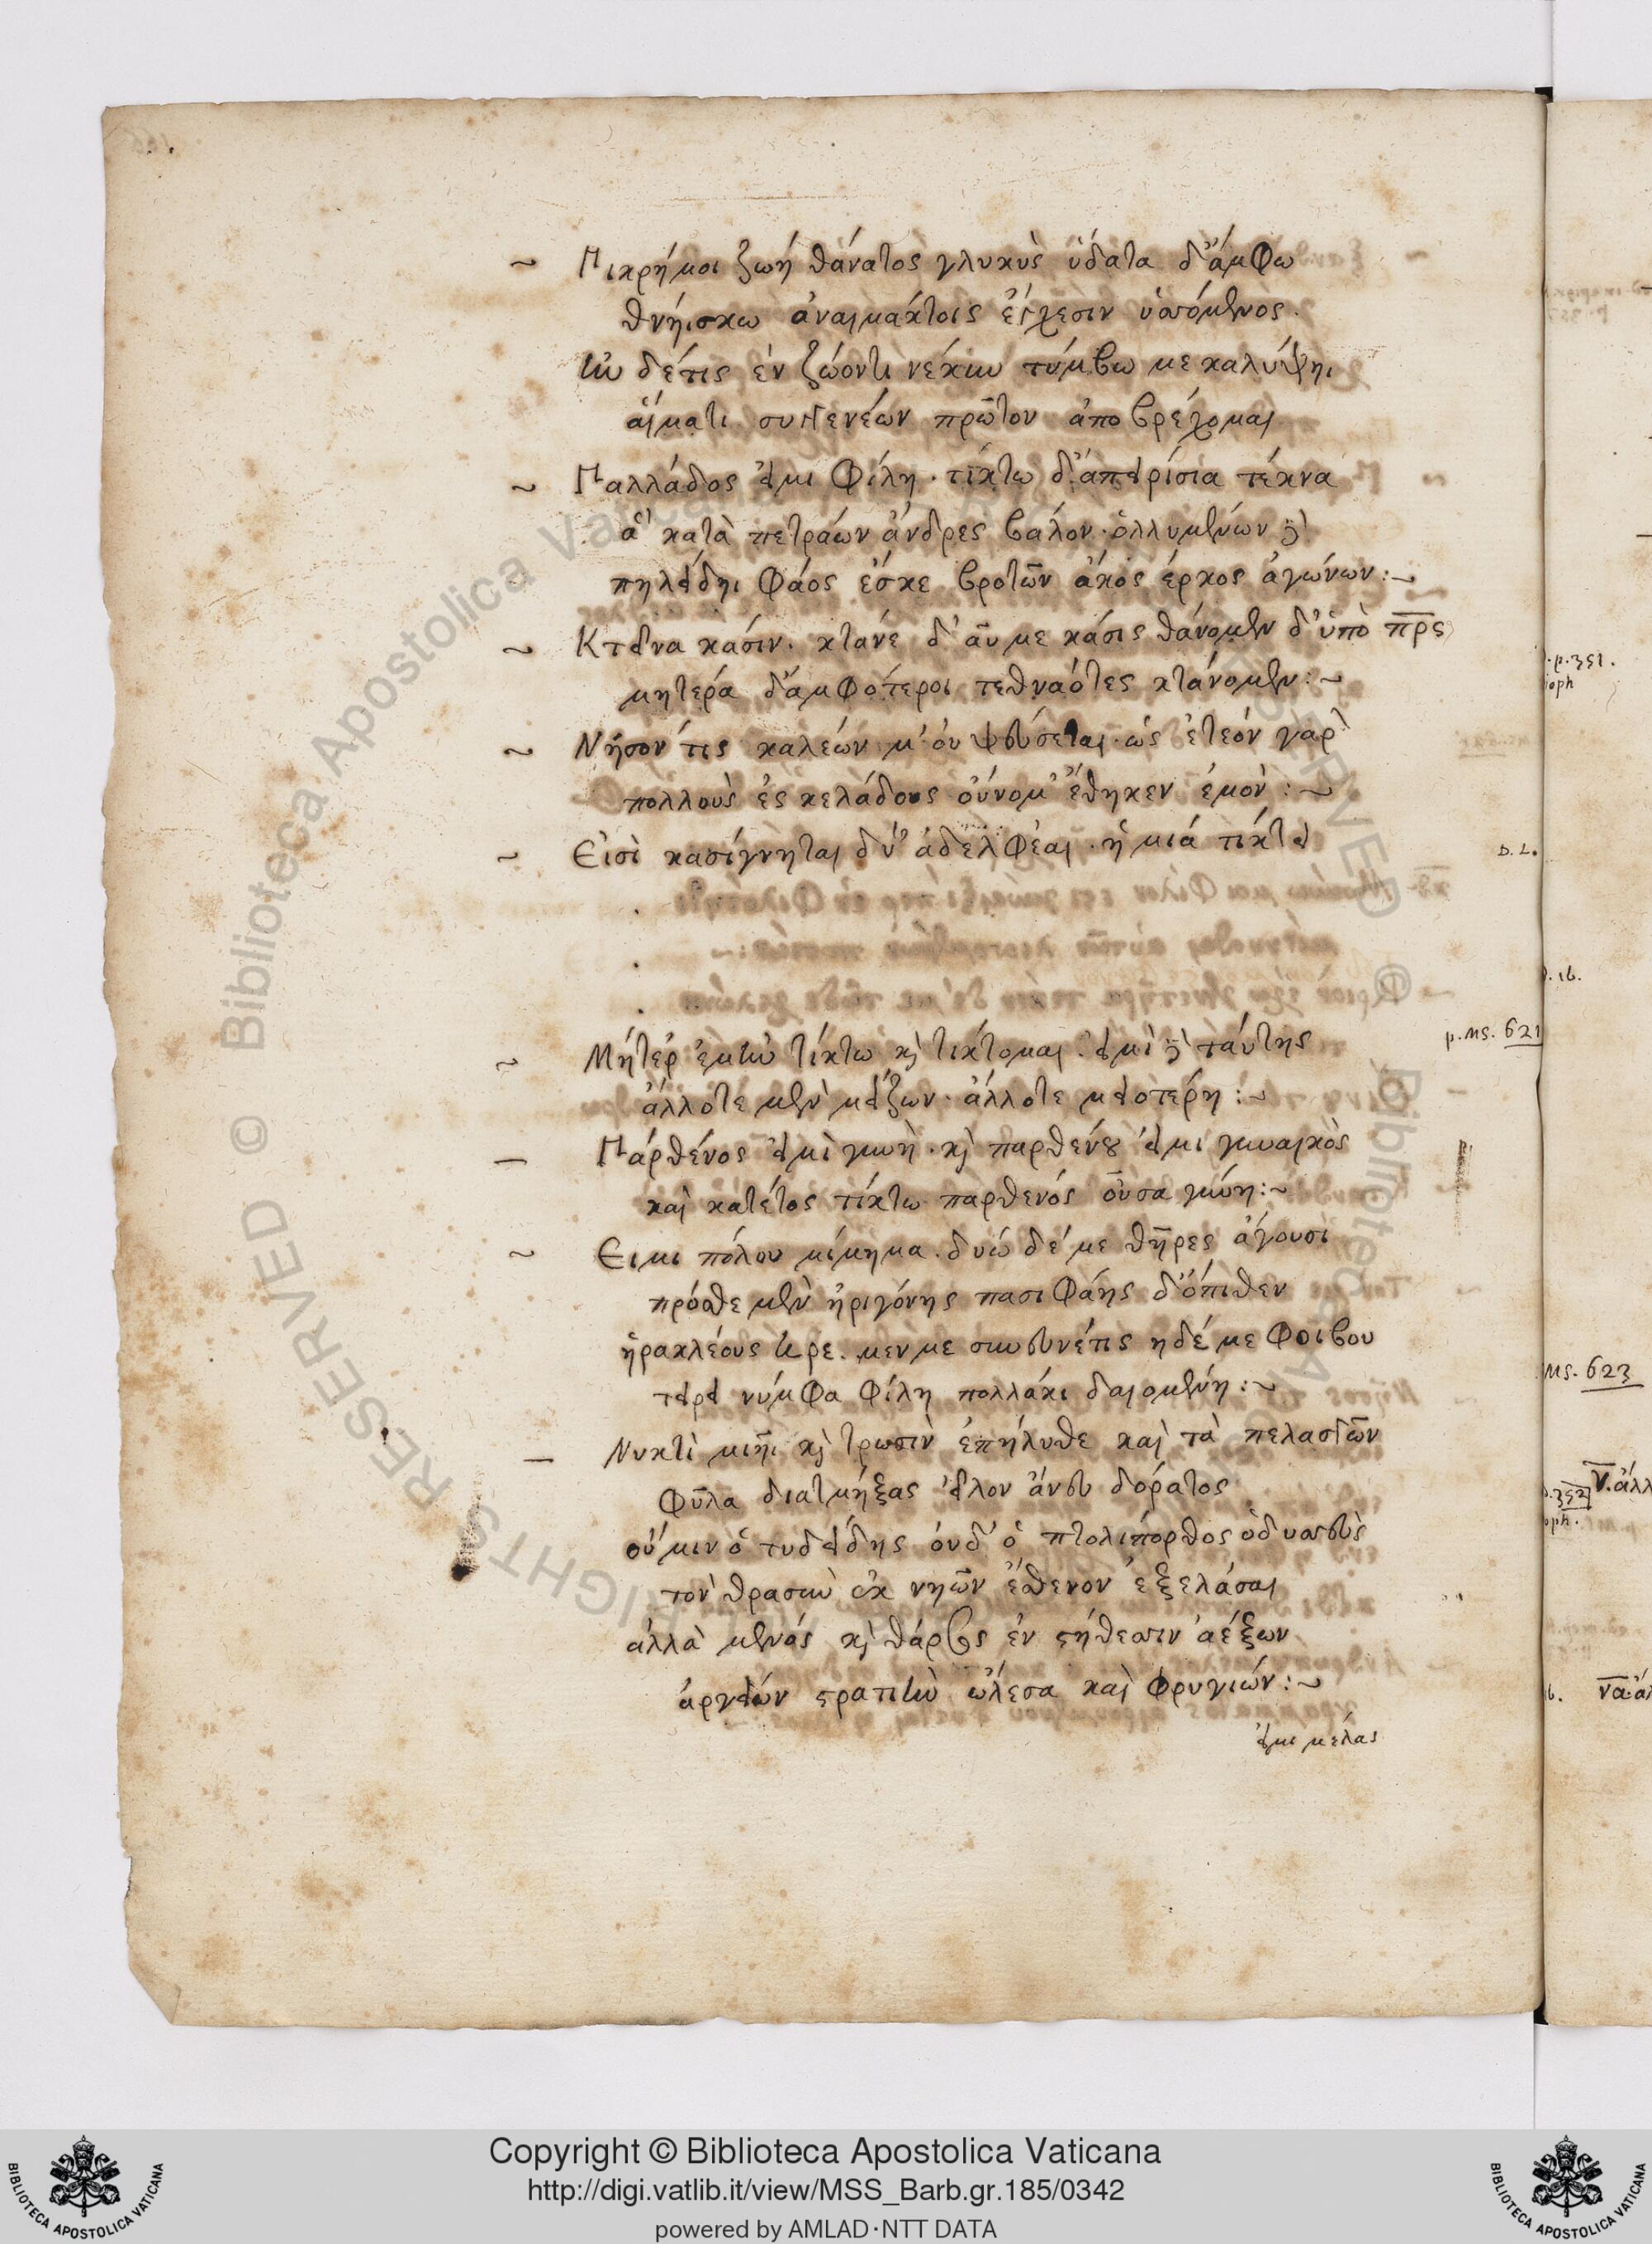 ~ Πικρή μοι ζωή θάνατος γλυκὺς ὑδατα δ' ἄμφω
θνήισκω ἀναιμακτοις ἔγχεσιν ὑσσόμενος.
ἢν δέ τις ἐν ζώοντι νέκυν τύμβω με καλύψηι
αἵματι συγγενέων πρῶτον ἀποβρέχομαι
~ Παλλάδος εἰμι φίλη · τίκτω δ' ἀπειρίσια τέκνα
ἁ κατὰ πετράων ἄνδρες βαλον · ὀλλυμένων δὲ
πηλείδηι φάος ἔσκε βροτῶν ἄκος ἕρκος ἀγώνων :~
~ Κτεῖνα κάσιν · κτανέ δ' αὖ με κάσις θάνομεν δ' ὑπὸ πρς
μητερά δ' ἀμφότεροι τεθναότες κτάνομεν :~
~ Νῆσόν τις καλέων μ' οὐ ψεύσεται · ὡς ἐτεόν γαρ
πολλοὺς ἐς κελάδους οὔνομ' ἔθηκεν ἐμόν :~
~ Εἰσὶ κασίγνηται δύ' ἀδελφέαι · ἡ μιά τίκτει
~ Μήτερ' ἐμὴν τίκτω κὶ τικτομαι · εἰμὶ δὲ ταύτης
ἄλλοτε μὲν μείζων · ἄλλοτε μειοτέρη :~
— Πάρθένος εἰμὶ γυνὴ · κὶ παρθένου εἰμι γυναικὸς
καὶ κατέτος τίκτω παρθενός οὖσα γύνη :~
~ Ειμι πόλου μίμημα · δυώ δέ με θῆρες ἄγουσι
πρόσθε μὲν ἠριγόνης πασιφάης δ' ὄπιθεν
ἡρακλέους
τείρει νύμφα φίλη πολλάκι δαιομένη :~
— Νυκτὶ μιῆι κὶ τρωσὶν ἐπήλυθε καὶ τὰ πελασγῶν
φῦλα διατμήξας εἷλον ἄνευ δόρατος
οὔ μιν ὁ τυδείδης οὐδ' ὁ πτολίπορθος ὀδυσσεὺς
τὸν θρασὺν ἐκ νηῶν ἔσθενον ἐξελάσαι
ἀλλὰ μένος κὶ θάρσος ἐν στήθεσσιν ἀέξων
ἀργείων στρατιὴν ὤλεσα καὶ φρυγιῶν :~
εἰμι μέλας
p. 351.
oph
D. L.
. ib.
p. Ms. 621
Ms. 623
p. 352
oph.
ν. ἀλλ
ib. να. ἀλ
RESERVED © Biblioteca Apostolica Vaticana
Copyright © Biblioteca Apostolica Vaticana
http://digi.vatlib.it/view/MSS_Barb.gr.185/0342
powered by AMLAD·NTT DATA
BIBLIOTECA APOSTOLICA VATICANA
BIBLIOTECA APOSTOLICA VATICANA